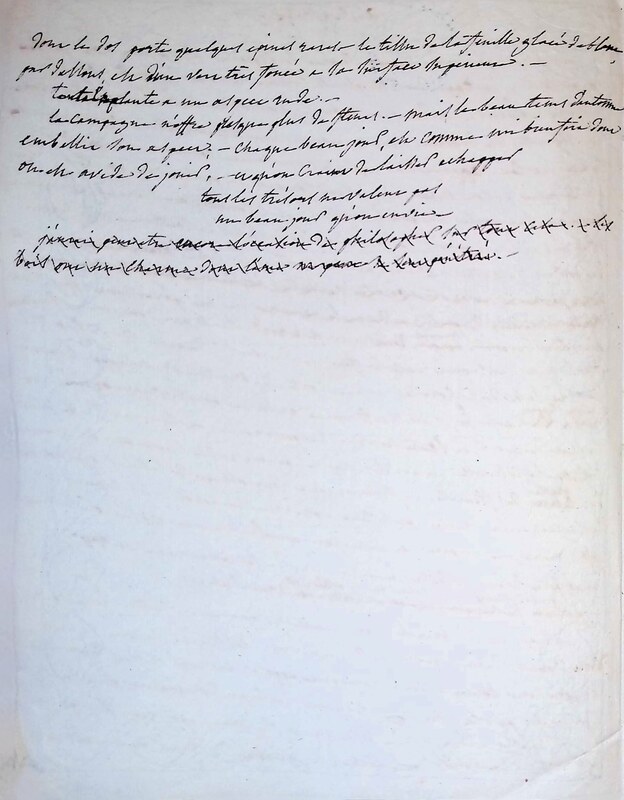 dont le dos porte quelques épines rares – le tissu de la feuille glacé de blanc
par dessous, et d'un vert très foncé a la surface superieure. –
toute la plante a un aspect rude. –
la campagne n'offre presque plus de fleurs. – mais le beau tems d'automne
embellit son aspect. – chaque beau jour, est comme un bienfait dont
on est avide de jouir, – et qu'on craint de laisser echapper
tous les trésors ne valent pas
un beau jour qu'on
l'occasion de philosopher sur tout
bois ont un charme dans l'ame